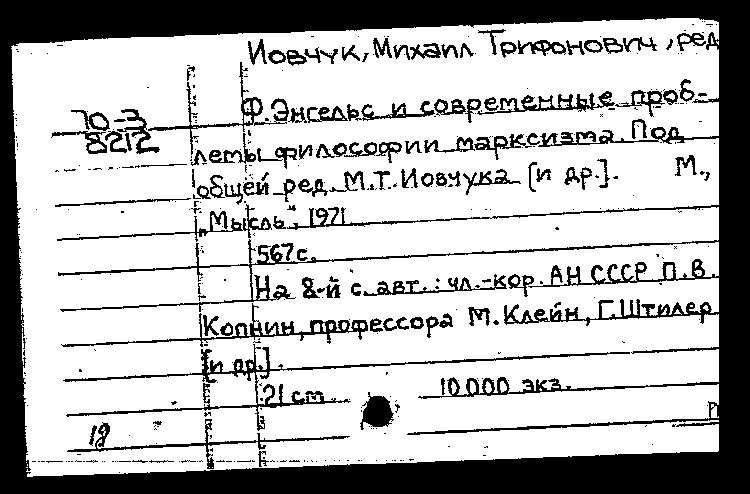 Иовчук, Михаил Трифонович, ред
70-3
8212
Ф. Энгельс и современные проб-
лемы философии марксизма. Под
общей ред. М.Т. Иовчука [и др.]. М.,
„Мысль", 1971
567 с.
На 8-й с. авт.: чл.-кор. АН СССР П.В.
Копнин, профессора М. Клейн, Г. Штилер
[и др.].
21 cm 10000 экз.